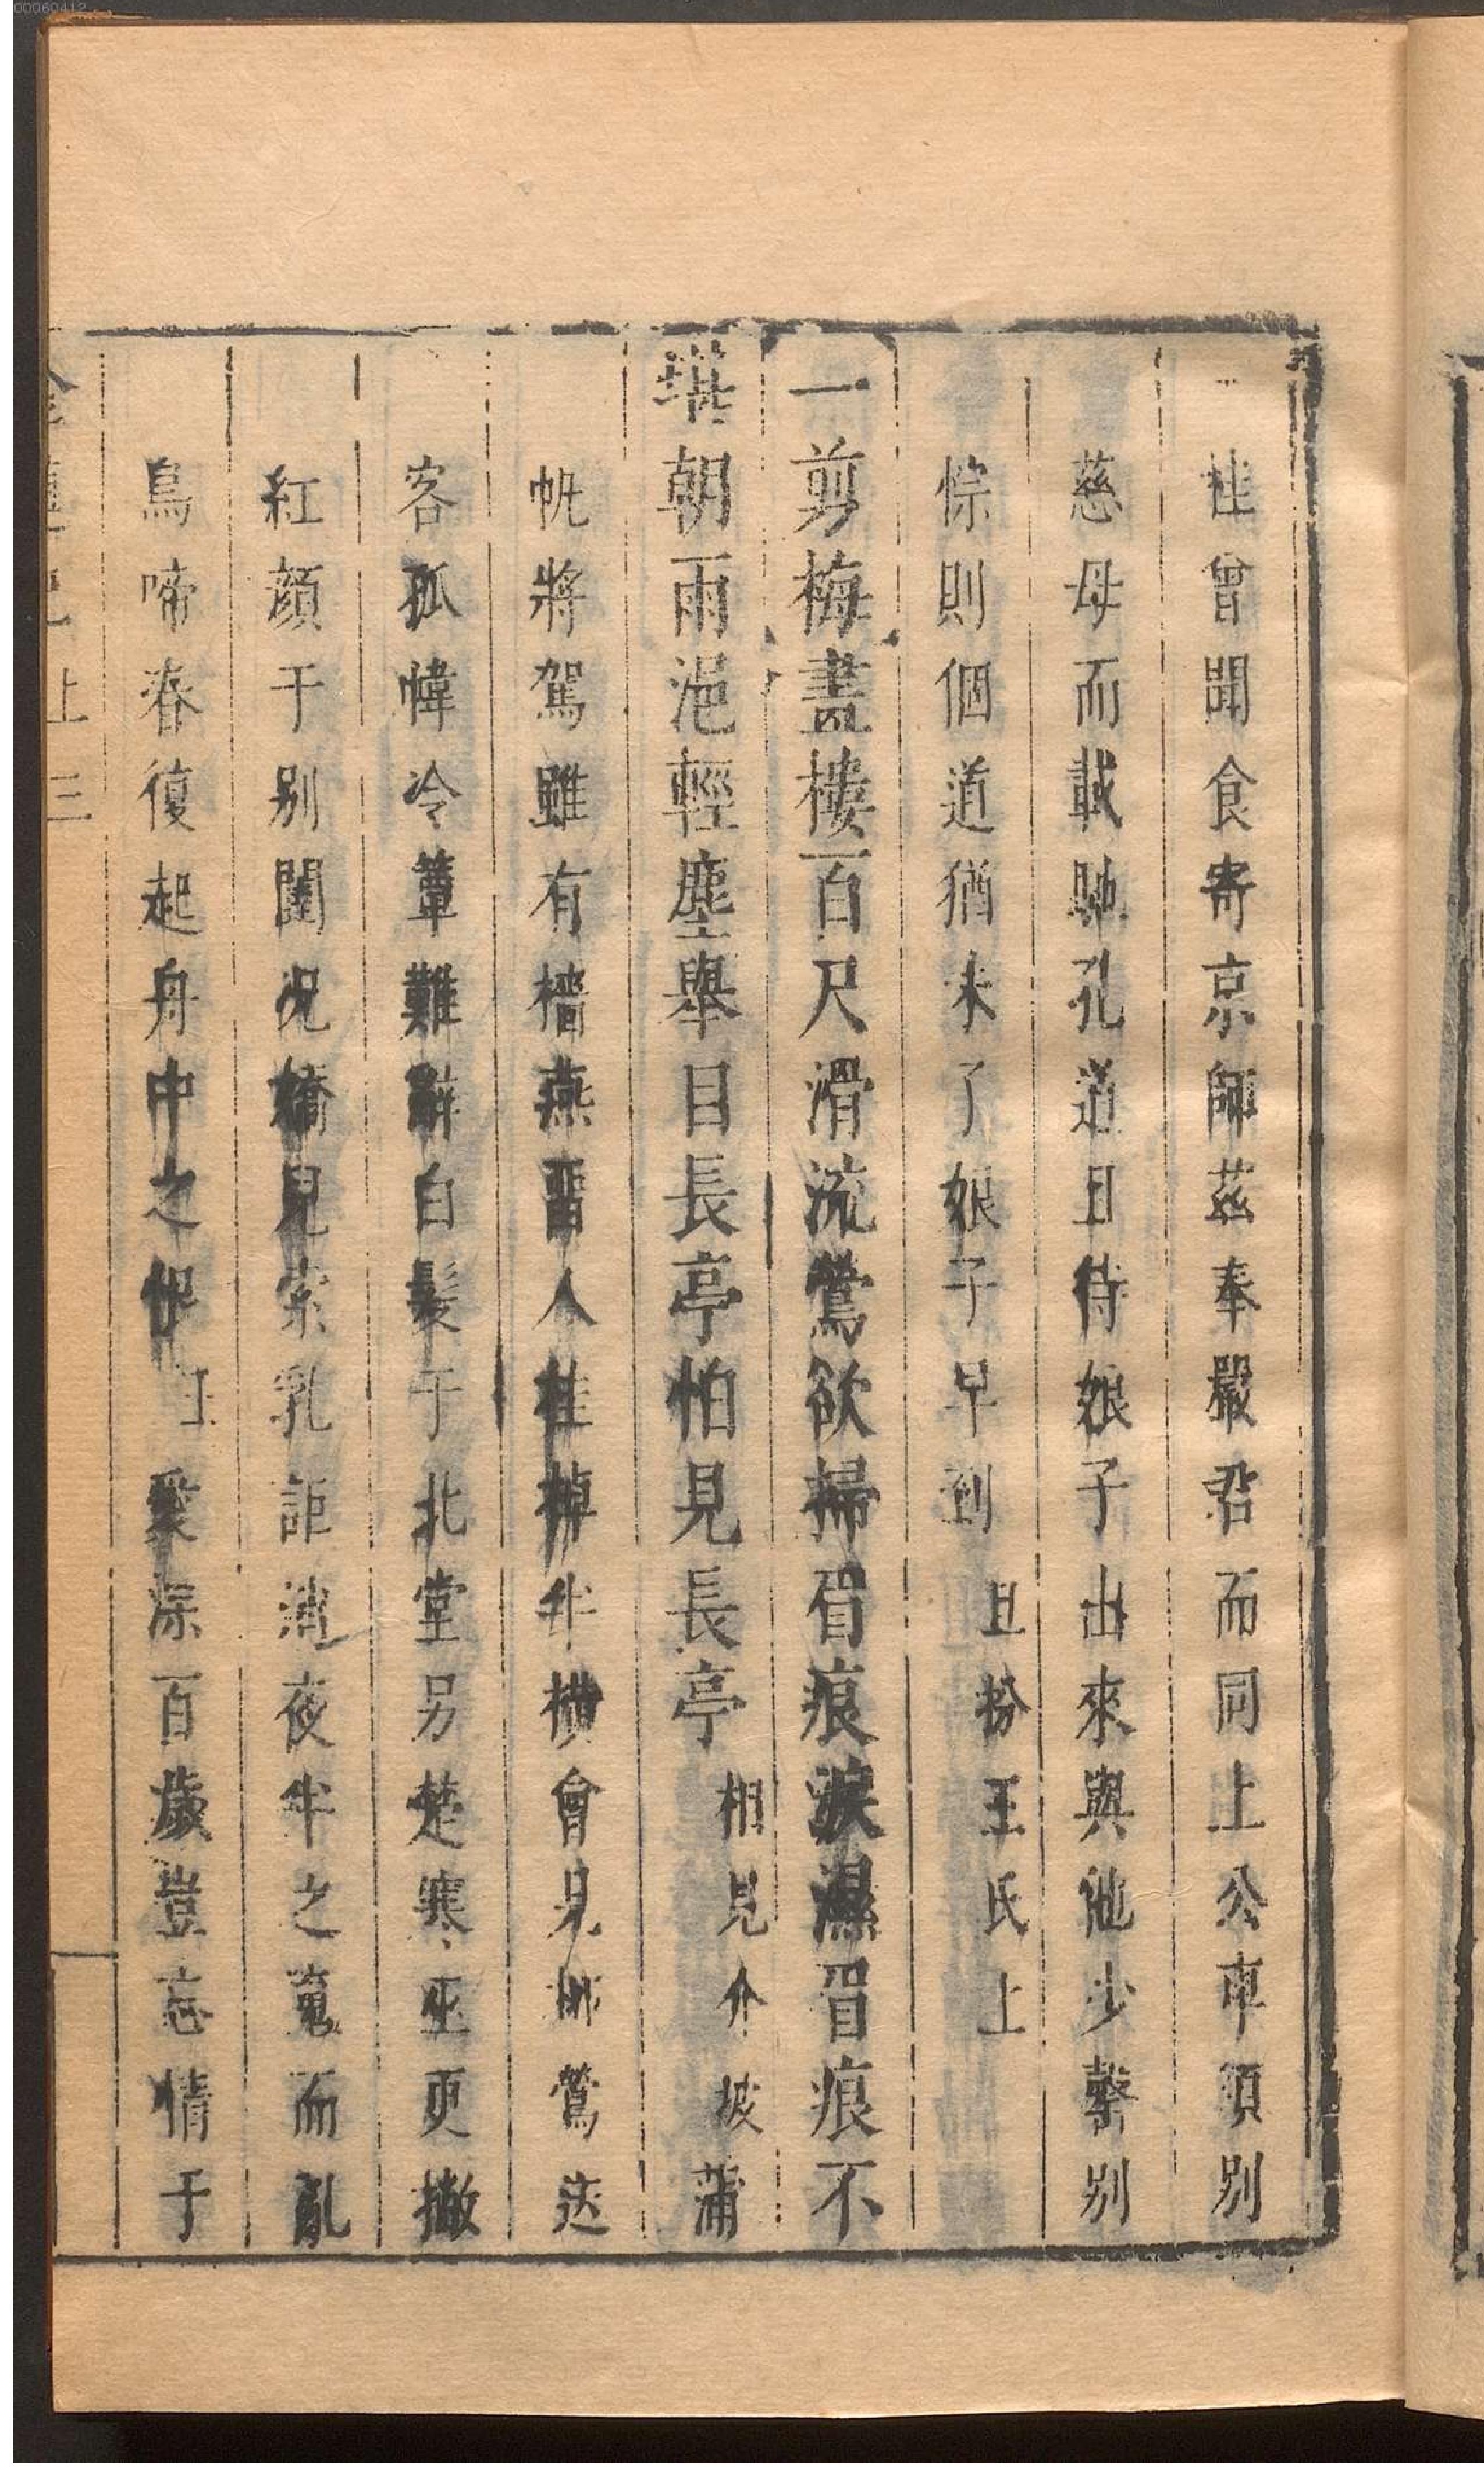 桂曾聞食寄京師茲奉嚴君而同上公車須別
慈母而載馳孔道且待娘子出來與他少罄別
悰則個道猶未了娘子早到 旦扮王氏上
一剪梅畫樓百尺滑流鶯欲掃眉痕淚濕眉痕不
堪朝雨浥輕塵舉目長亭怕見長亭 相見介 坡 蒲
帆將駕雖有檣燕留人桂棹半橫會見梛鶯送
客孤幃冷簟難辭白髮于北堂另楚寒巫更撇
紅顔于別閨況嬌兒索乳詎消夜半之䰟而亂
鳥啼春復起舟中之恨 旦 愛深百歲豈忘情于
上 三
00060412